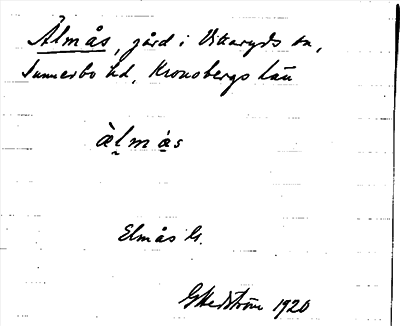 Älmås, gård i Vittaryds sn,
Sunnerbo hd, Kronobergs län
àlmás
Elmås G.
G Hedström 1920